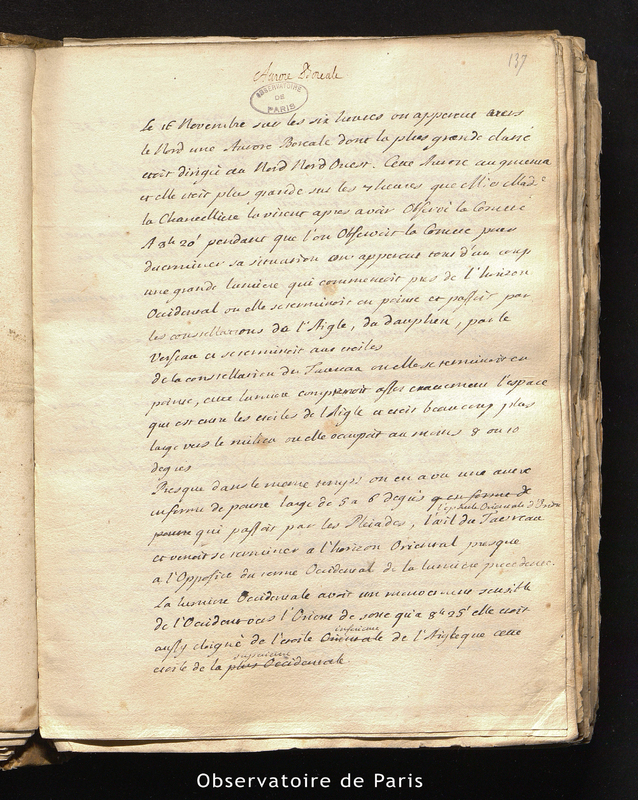 137
Aurore Boreale
OBSERVATOIRE
DE
PARIS
Le 15 Novembre sur les six heures on apperceut vers
le Nord une Aurore Boreale dont la plus grande clarté
etoit dirigé au Nord Nord Ouest. Cette Aurore augmenta
et elle etoit plus grande sur les 7 heures que Mad.e
la Chancelliere la virent apres avoir Observé la Comete
A 8h 20' pendant que l'on Observoit la Comete pour
determiner sa situation on apperceut tout d'un coup
une grande lumiere qui commencoit pres de l'horison
Occidental ou elle se terminoit en pointe et passoit par
les constellations de l'Aigle, du dauphin, par le
Verseau et se terminoit aux etoiles
de la constellation du Taureau ou elle se terminoit en
pointe, cette lumiere comprenoit assés exactement l'espace
qui est entre les etoiles de l'Aigle et etoit beaucoup plus
large vers le milieu ou elle occupoit au moins 8 ou 10
degrés
Presque dans le meme temps on en a vu une autre
en forme de poutre large de 5 a 6 degrés q en forme de
l'epaule Orientale d'Orion
poutre qui passoit par les Pleiades, l'œil du Taureau
et venoit se terminer a l'horizon Oriental presque
a l'Opposite du terme Occidental de la lumiere precedente.
La lumiere Occidentale avoit un mouvement sensible
de l'Occident vers l'Orient de sorte qu'a 8h 25' elle etoit
inferieure
aussy eloigné de l'etoile Orientale de l'Aigle que cette
superieure
etoile de la plus Occidentale
Observatoire de Paris